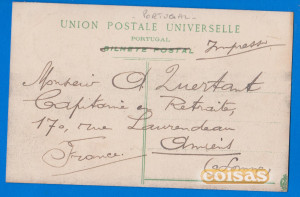 PORTUGAL
UNION POSTALE UNIVERSELLE
PORTUGAL
BILHETE POSTAL
Impresso
Monsieur A Quertant
Capitaine en
Retraite,
170, rue Laurendeau
Amiens
(La Somme)
France.
coisas